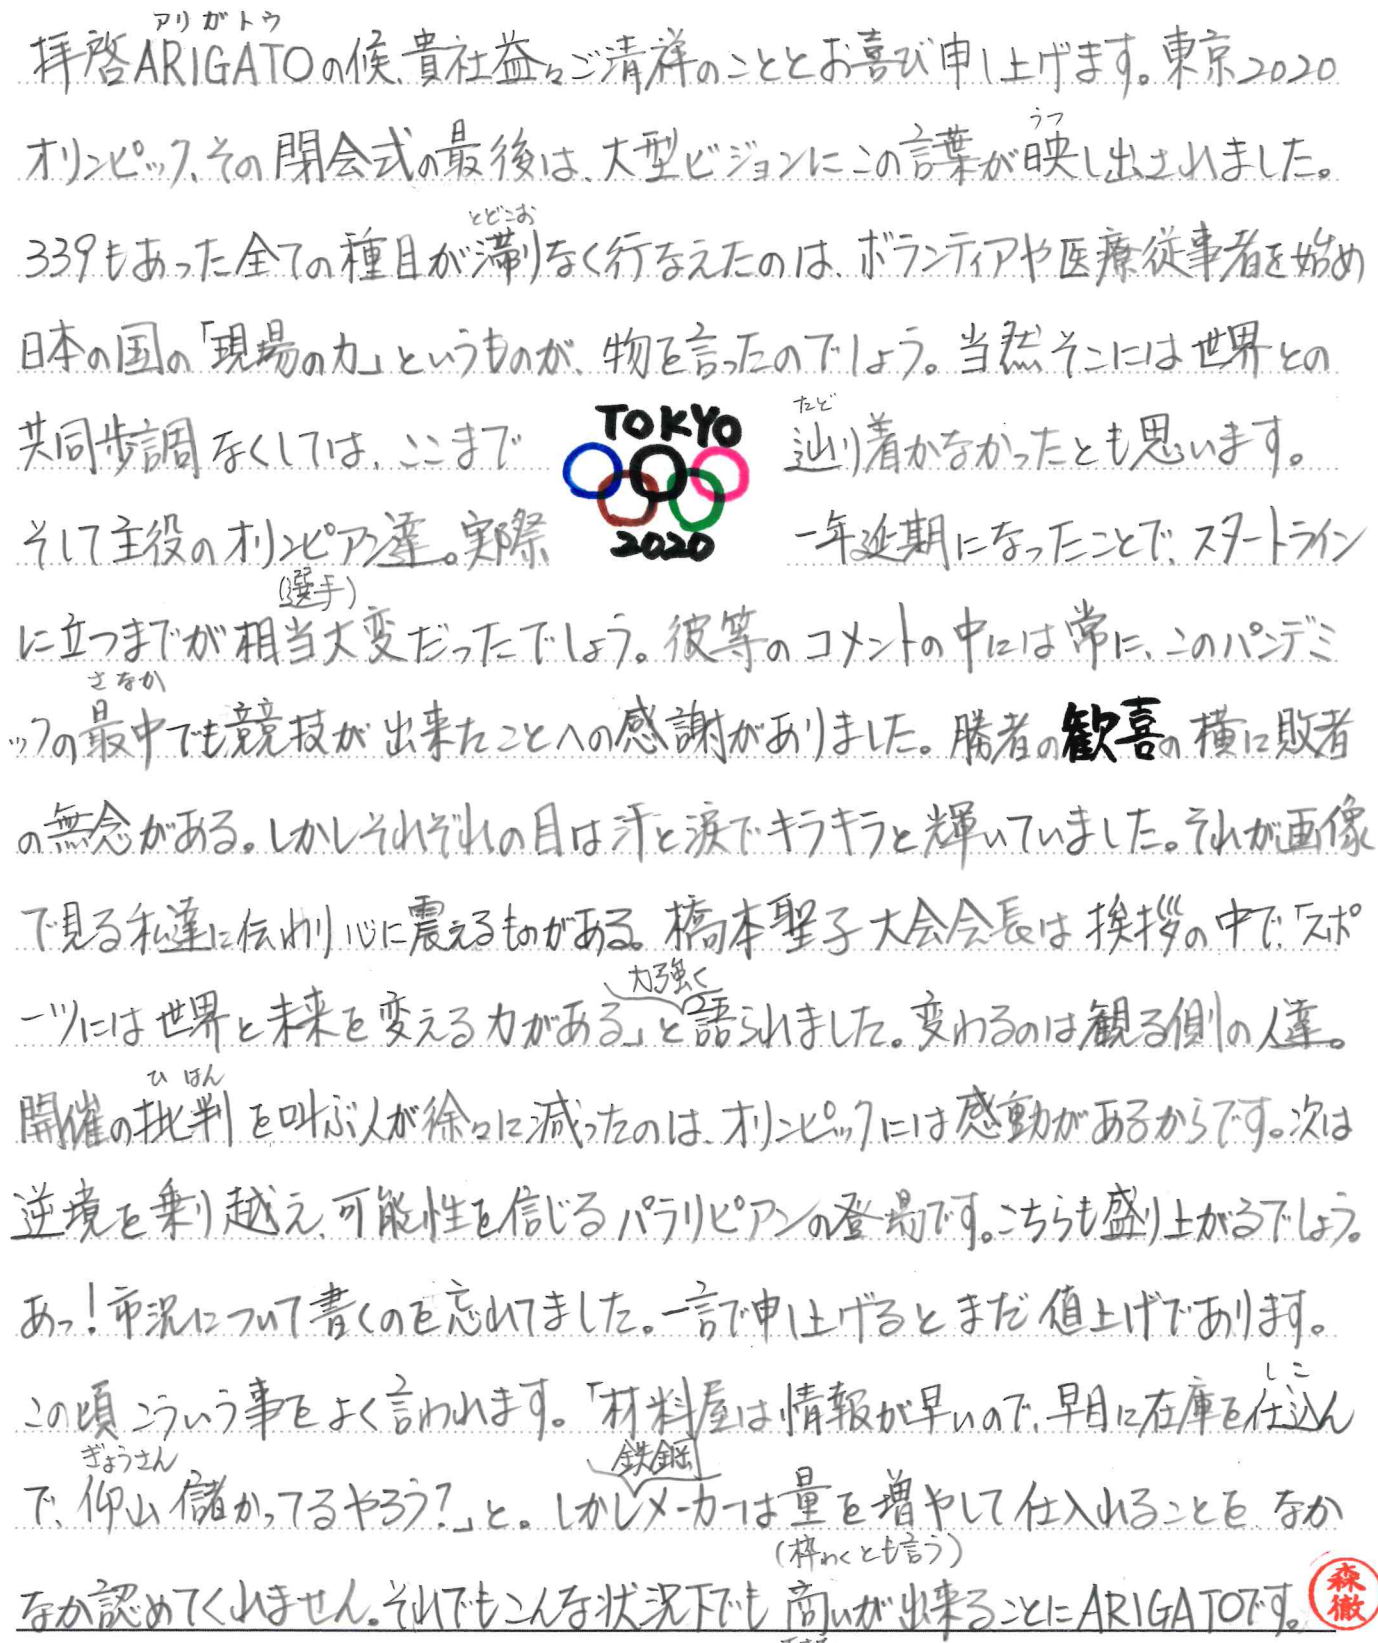 アリガトウ
拝啓ARIGATOの候、貴社益々ご清祥のこととお喜び申し上げます。東京2020
うつ
オリンピック、その閉会式の最後は、大型ビジョンにこの言葉が映し出されました。
とどこお
339もあった全ての種目が滞りなく行なえたのは、ボランティアや医療従事者を始め
日本の国の「現場の力」というものが、物を言ったのでしょう。当然そこには世界との
TOKYO
たど
共同歩調なくしては、ここまで辿り着かなかったとも思います。
そして主役のオリンピアン達。実際一年延期になったことで、スタートライン
2020
(選手)
に立つまでが相当大変だったでしょう。彼等のコメントの中には常に、このパンデミ
さなか
ックの最中でも競技が出来たことへの感謝がありました。勝者の歓喜の横に敗者
の無念がある。しかしそれぞれの目は汗と涙でキラキラと輝いていました。それが画像
で見る私達に伝わり心に震えるものがある。橋本聖子大会会長は挨拶の中で、「スポ
力強く
ーツには世界と未来を変える力がある」と語られました。変わるのは観る側の人達。
ひはん
開催の批判を叫ぶ人が徐々に減ったのは、オリンピックには感動があるからです。次は
逆境を乗り越え、可能性を信じるパラリピアンの登場です。こちらも盛り上がるでしょう。
あっ!市況について書くのを忘れてました。一言で申し上げるとまだ値上げであります。
しこ
この頃こういう事をよく言われます。「材料屋は情報が早いので、早目に在庫を仕込ん
ぎょうさん
鉄鋼
で、仰山儲かってるやろう?」と。しかしメーカーは量を増やして仕入れることを、なか
(枠わくとも言う)
なか認めてくれません。それでもこんな状況下でも商いが出来ることにARIGATOです。
森徹